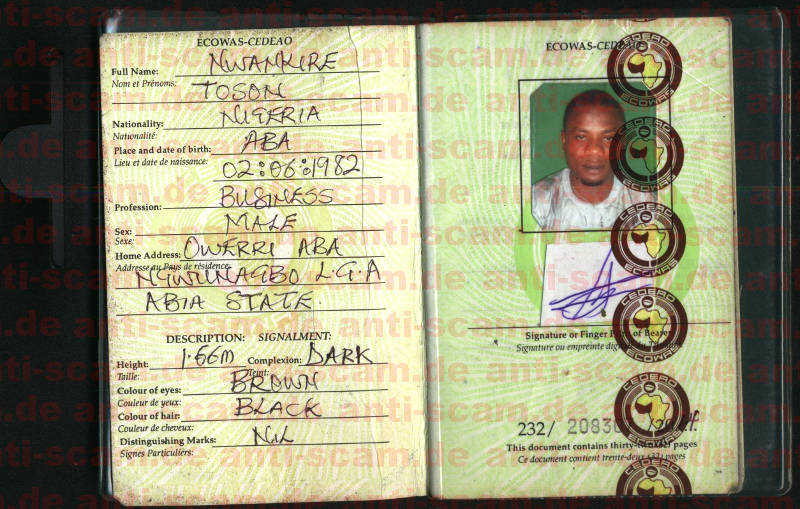 ECOWAS-CEDEAO
Full Name: NWANKIRE
Nom et Prénoms:
TOSON
Nationality: NIGERIA
Nationalité:
Place and date of birth: ABA
Lieu et date de naissance: 02:06:1982
Profession: BUSINESS
Sex: MALE
Sexe:
Home Address: OWERRI ABA
Adresse au Pays de résidence:
L.G.A
ABIA STATE.
DESCRIPTION: SIGNALMENT:
Height: 1.66M Complexion: DARK
Taille: Teint:
Colour of eyes: BROWN
Couleur de yeux:
Colour of hair: BLACK
Couleur de cheveux:
Distinguishing Marks: NIL
Signes Particuliers:
ECOWAS-CEDEAO
Signature or Finger of Bearer
Signature ou empreinte
232/ 20830
This document contains pages
Ce document contient trente-deux (32) pages
CEDEAO
ECOWAS
CEDEAO
ECOWAS
CEDEAO
ECOWAS
CEDEAO
ECOWAS
CEDEAO
ECOWAS
CEDEAO
anti-scam.de